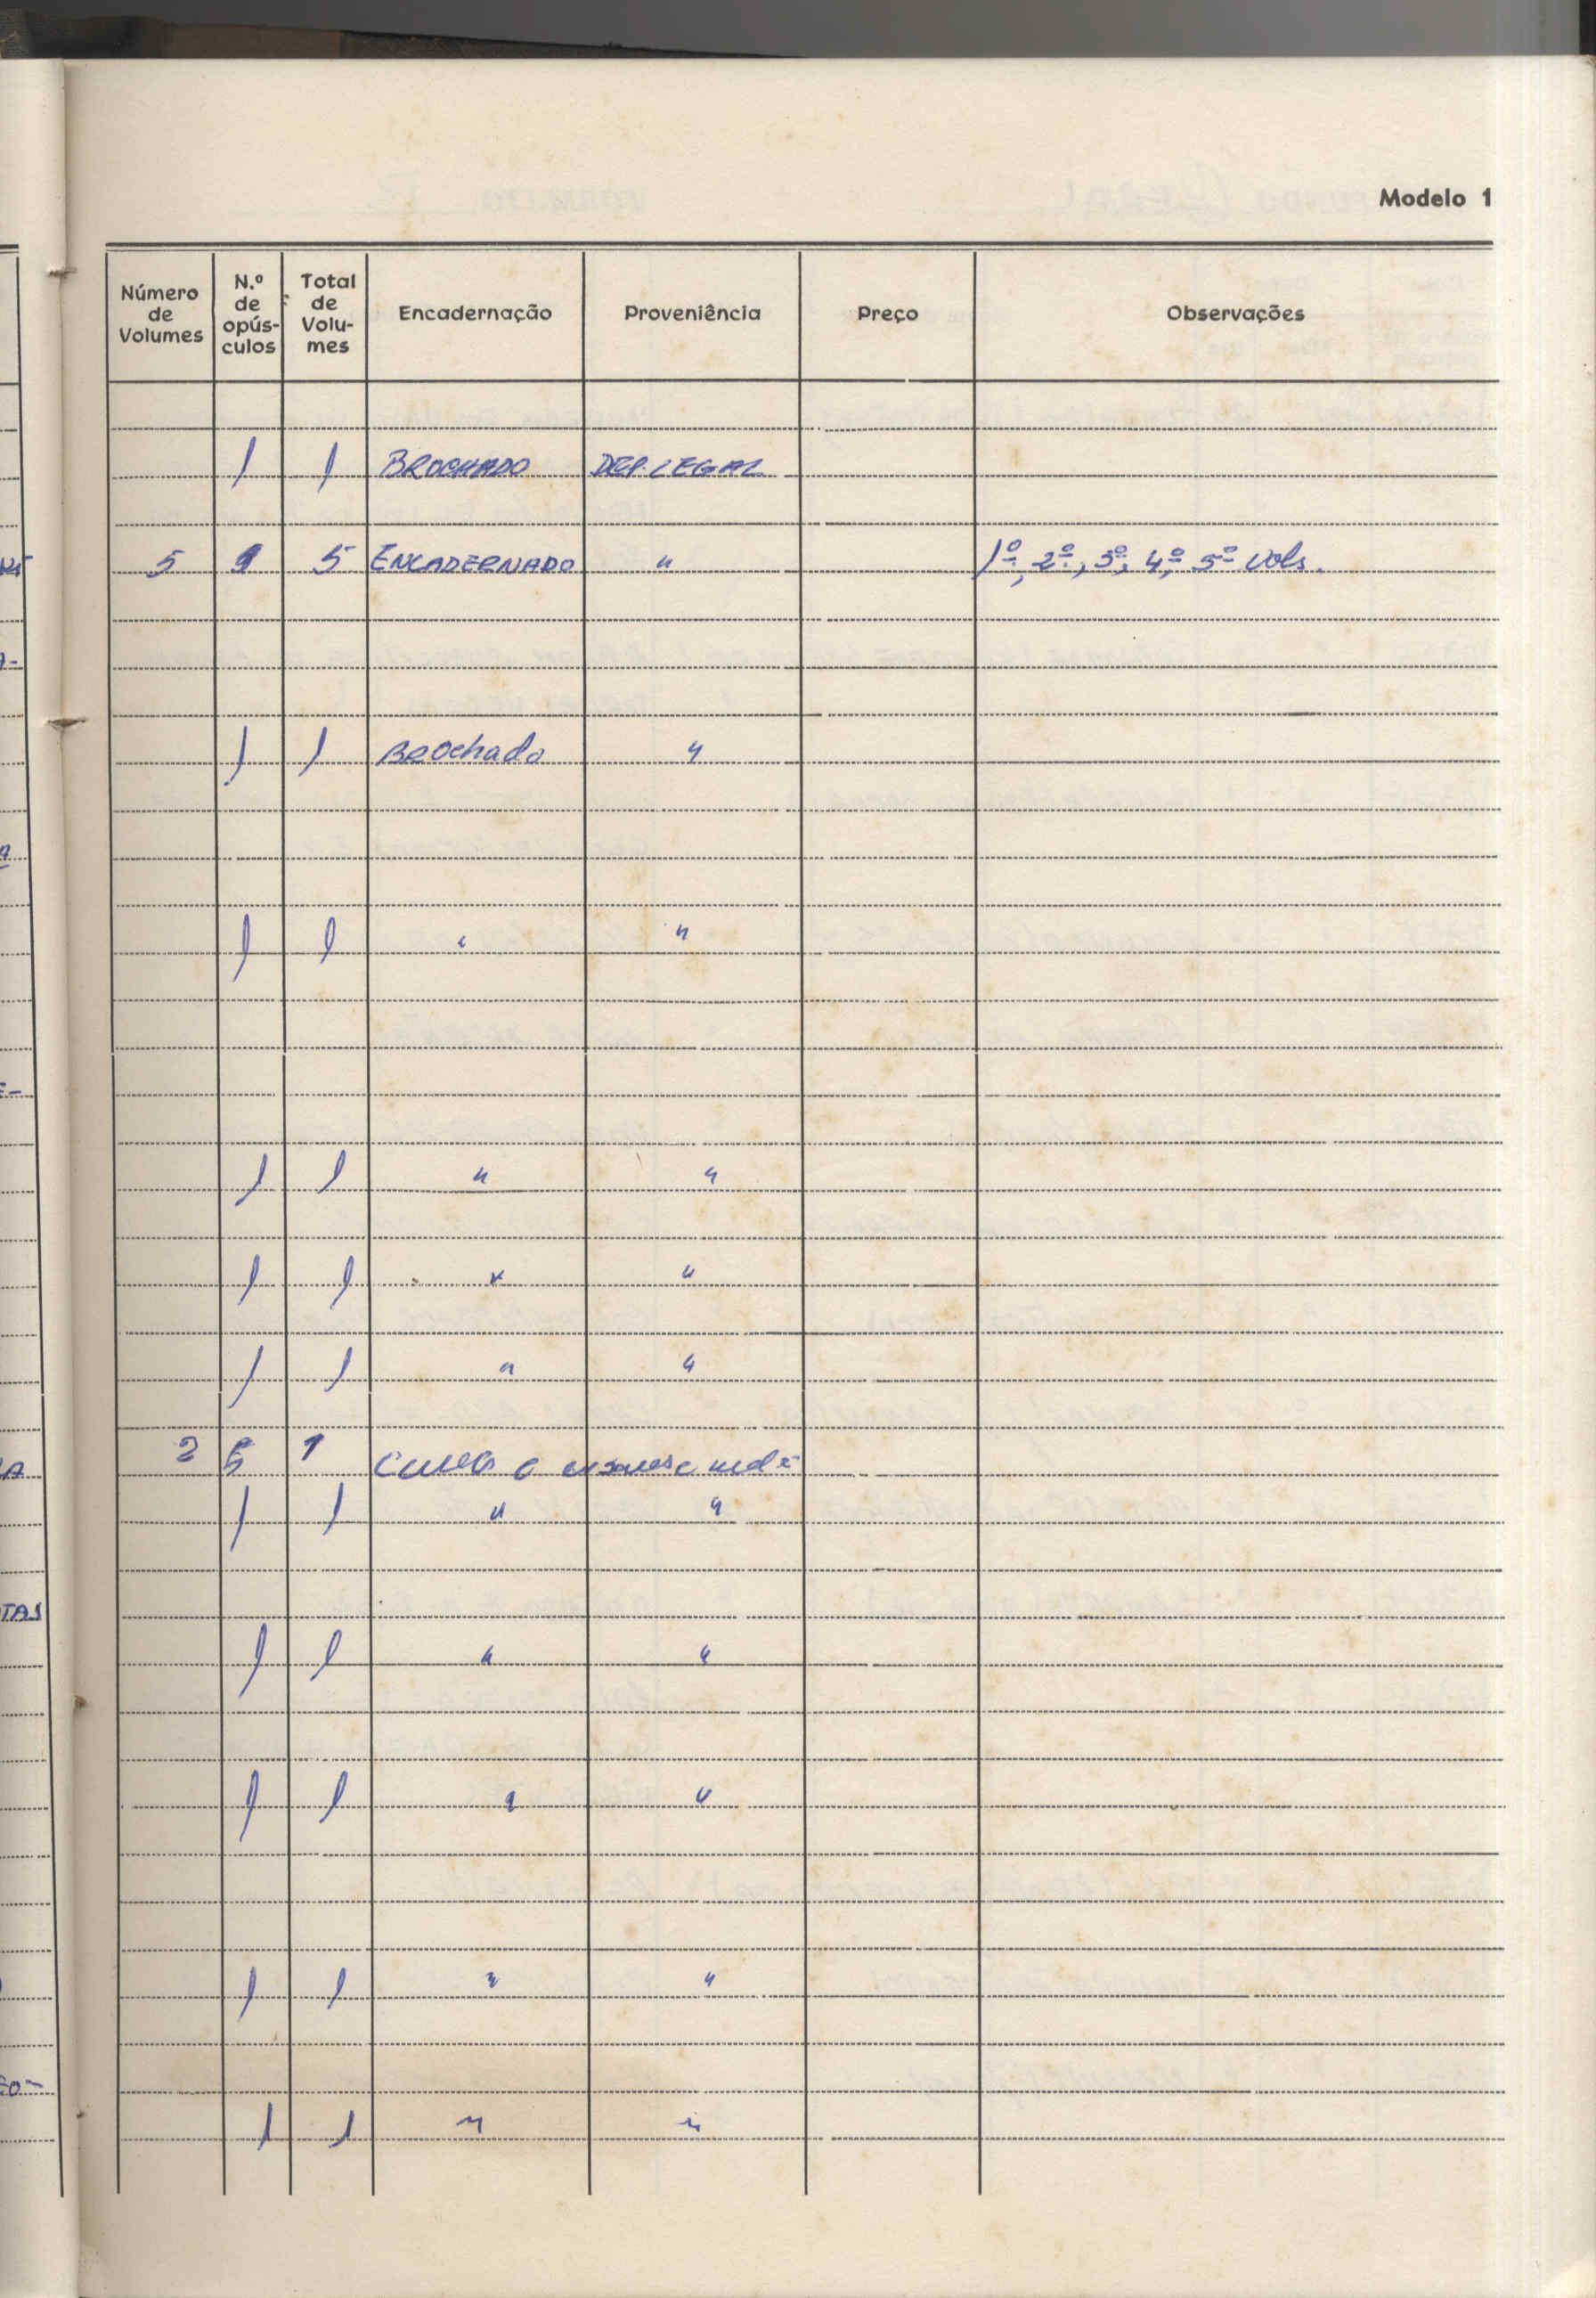 Modelo 1
Número de Volumes N.º de opús- culos Total de Volu- mes Encadernação Proveniência Preço Observações
1 1 BROCHADO DEP. LEGAL
5 1 5 ENCADERNADO " 1º, 2º, 3º, 4º, 5º vols.
1 1 Brochado "
1 1 " "
1 1 " "
1 1 " "
1 1 " "
2 5 1
1 1 " "
1 1 " "
1 1 " "
1 1 " "
1 1 " "
TAS